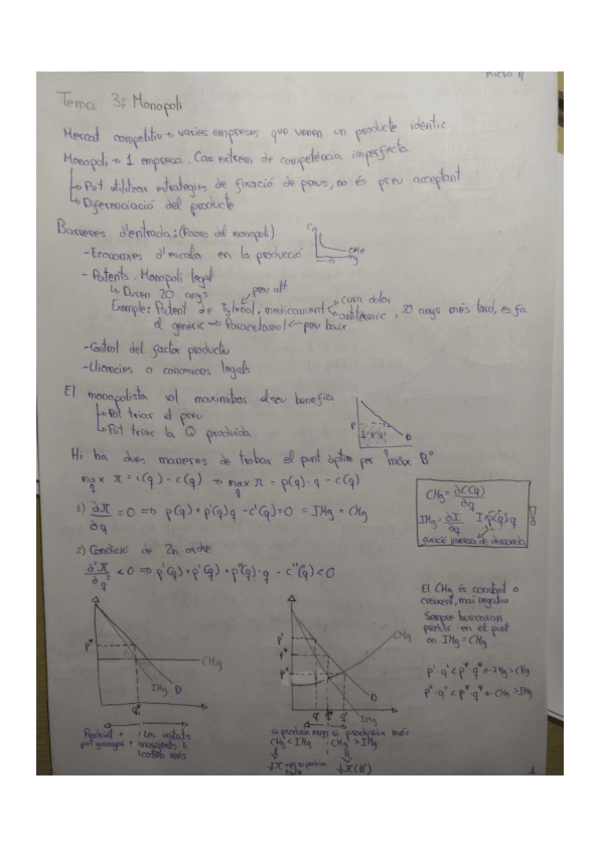 Micro II
Tema 3: Monopoli
Mercat competitiu → varies empreses que venen un producte idèntic
Monopoli → 1 empresa. Cas extrem de competència imperfecta
↳ Pot utilitzar estratègies de fixació de preus, no és preu acceptant
↳ Diferenciació del producte
Barreres d'entrada: (Raons del monopoli)
- Economies d'escala en la producció
- Patents. Monopoli legal
↳ Duren 20 anys
preu alt
Exemple: Patent de Tylenol, medicament
cura dolor
antitèrmic, 20 anys más tard, es fa
el genèric → Paracetamol ← preu baix
- Control del factor productiu
- Llicències o concessions legals
El monopolista vol maximitzar el seu benefici
↳ Pot triar el preu
↳ Pot triar la Q produida
P
D
q
Hi ha dues maneres de trobar el punt òptim per màx Bº
max q π = i(q) - c(q) → max q π = p(q)·q - c(q)
1) ∂π/∂q = 0 ⇒ p(q) + p'(q)q - c'(q) = 0 = IMg = CMg
CMg = ∂C(q)/∂q
IMg = ∂I/∂q I = p(q)·q
funció inversa de demanda
2) Condició de 2n ordre
∂²π/∂q² < 0 ⇒ p'(q) + p'(q) + p''(q)·q - c''(q) < 0
El CMg és constant o
creixent, mai negatiu
Sempre buscaran
produir en el punt
on IMg = CMg
p'·q' < p*·q* → IMg > CMg
p*·q* ← CMg > IMg
p*
CMg
IMg
D
q*
p'
p*
CMg
D
IMg
q'
q*
Produint +
pot guanyar +
Les unitats
costen més
si produeix menys
CMg < IMg
si produeix més
CMg > IMg
↓π
↓π (Bº)